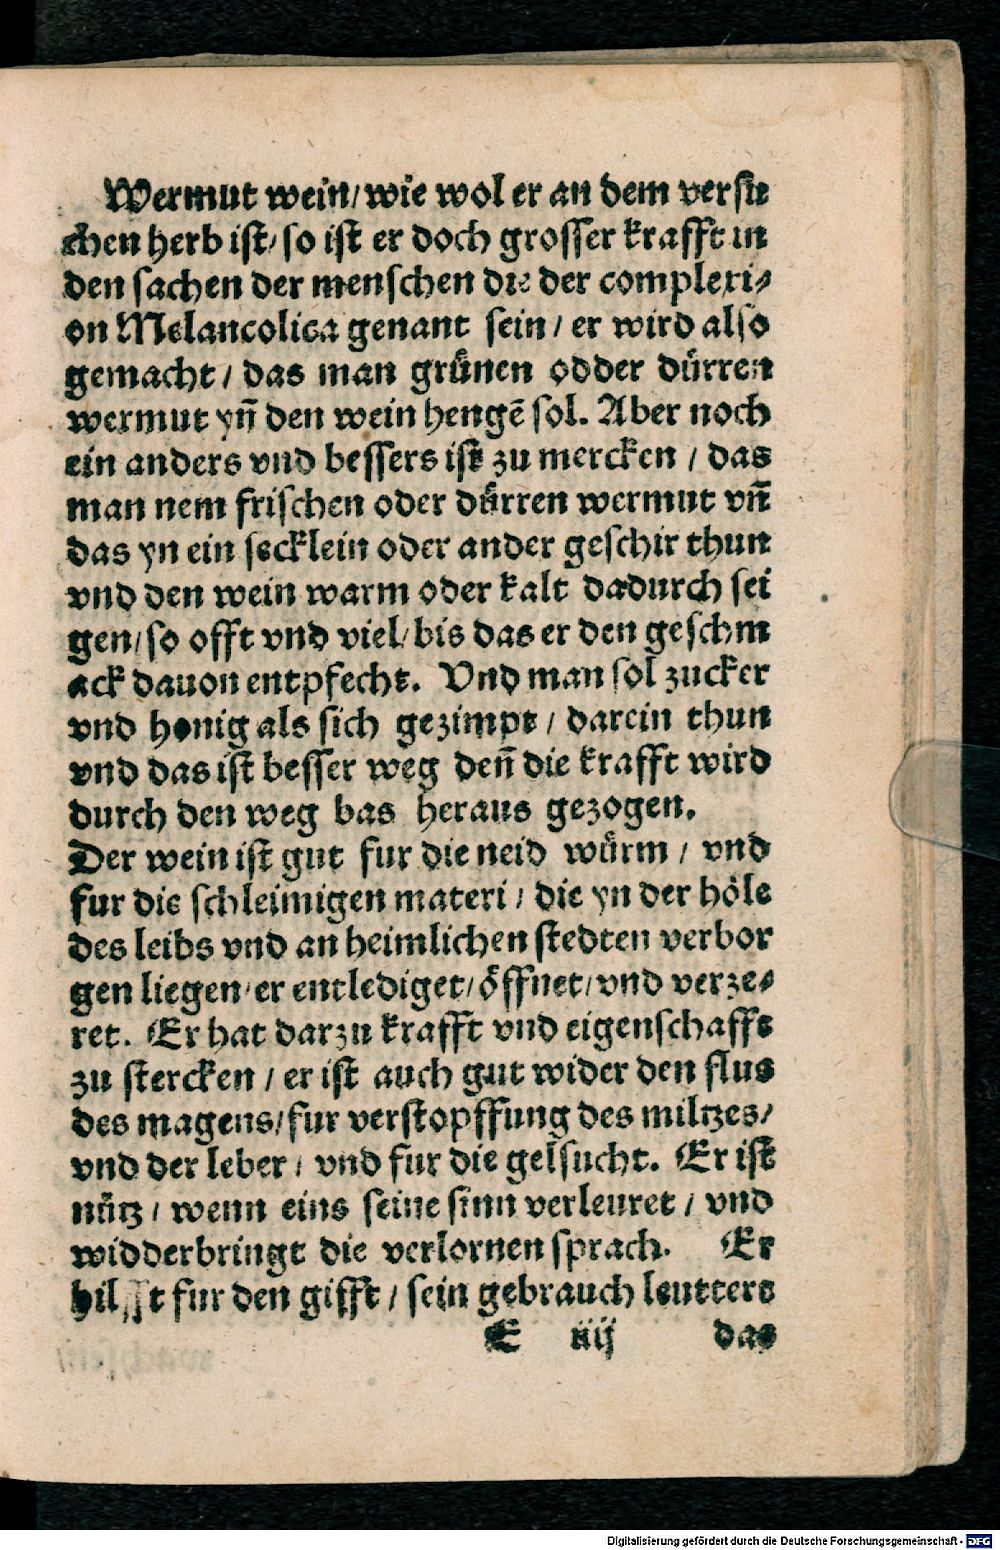 Wermut wein/wie wol er an dem versu
chen herb ist/ so ist er doch grosser krafft in
den sachen der menschen die der complexi⸗
on Melancolica genant sein / er wird also
gemacht / das man grünen odder dürren
wermut yñ den wein hengē sol. Aber noch
ein anders vnd bessers ist zu mercken / das
man nem frischen oder dürren wermut vñ
das yn ein secklein oder ander geschir thun
vnd den wein warm oder kalt dadurch sei
gen/so offt vnd viel/bis das er den geschm
ack dauon entpfecht. Vnd man sol zucker
vnd honig als sich gezimpt / darein thun
vnd das ist besser weg deñ die krafft wird
durch den weg bas heraus gezogen.
Der wein ist gut fur die neid würm / vnd
fur die schleimigen materi / die yn der höle
des leibs vnd an heimlichen stedten verbor
gen liegen/er entlediget/öffnet/vnd verze⸗
ret. Er hat darzu krafft vnd eigenschafft
zu stercken / er ist auch gut wider den flus
des magens/fur verstopffung des miltzes/
vnd der leber / vnd fur die gelsucht. Er ist
nütz / wenn eins seine sinn verleuret / vnd
widderbringt die verlornen sprach. Er
hilfft fur den gifft / sein gebrauch leuttert
E iiij das
Digitalisierung gefördert durch die Deutsche Forschungsgemeinschaft - DFG